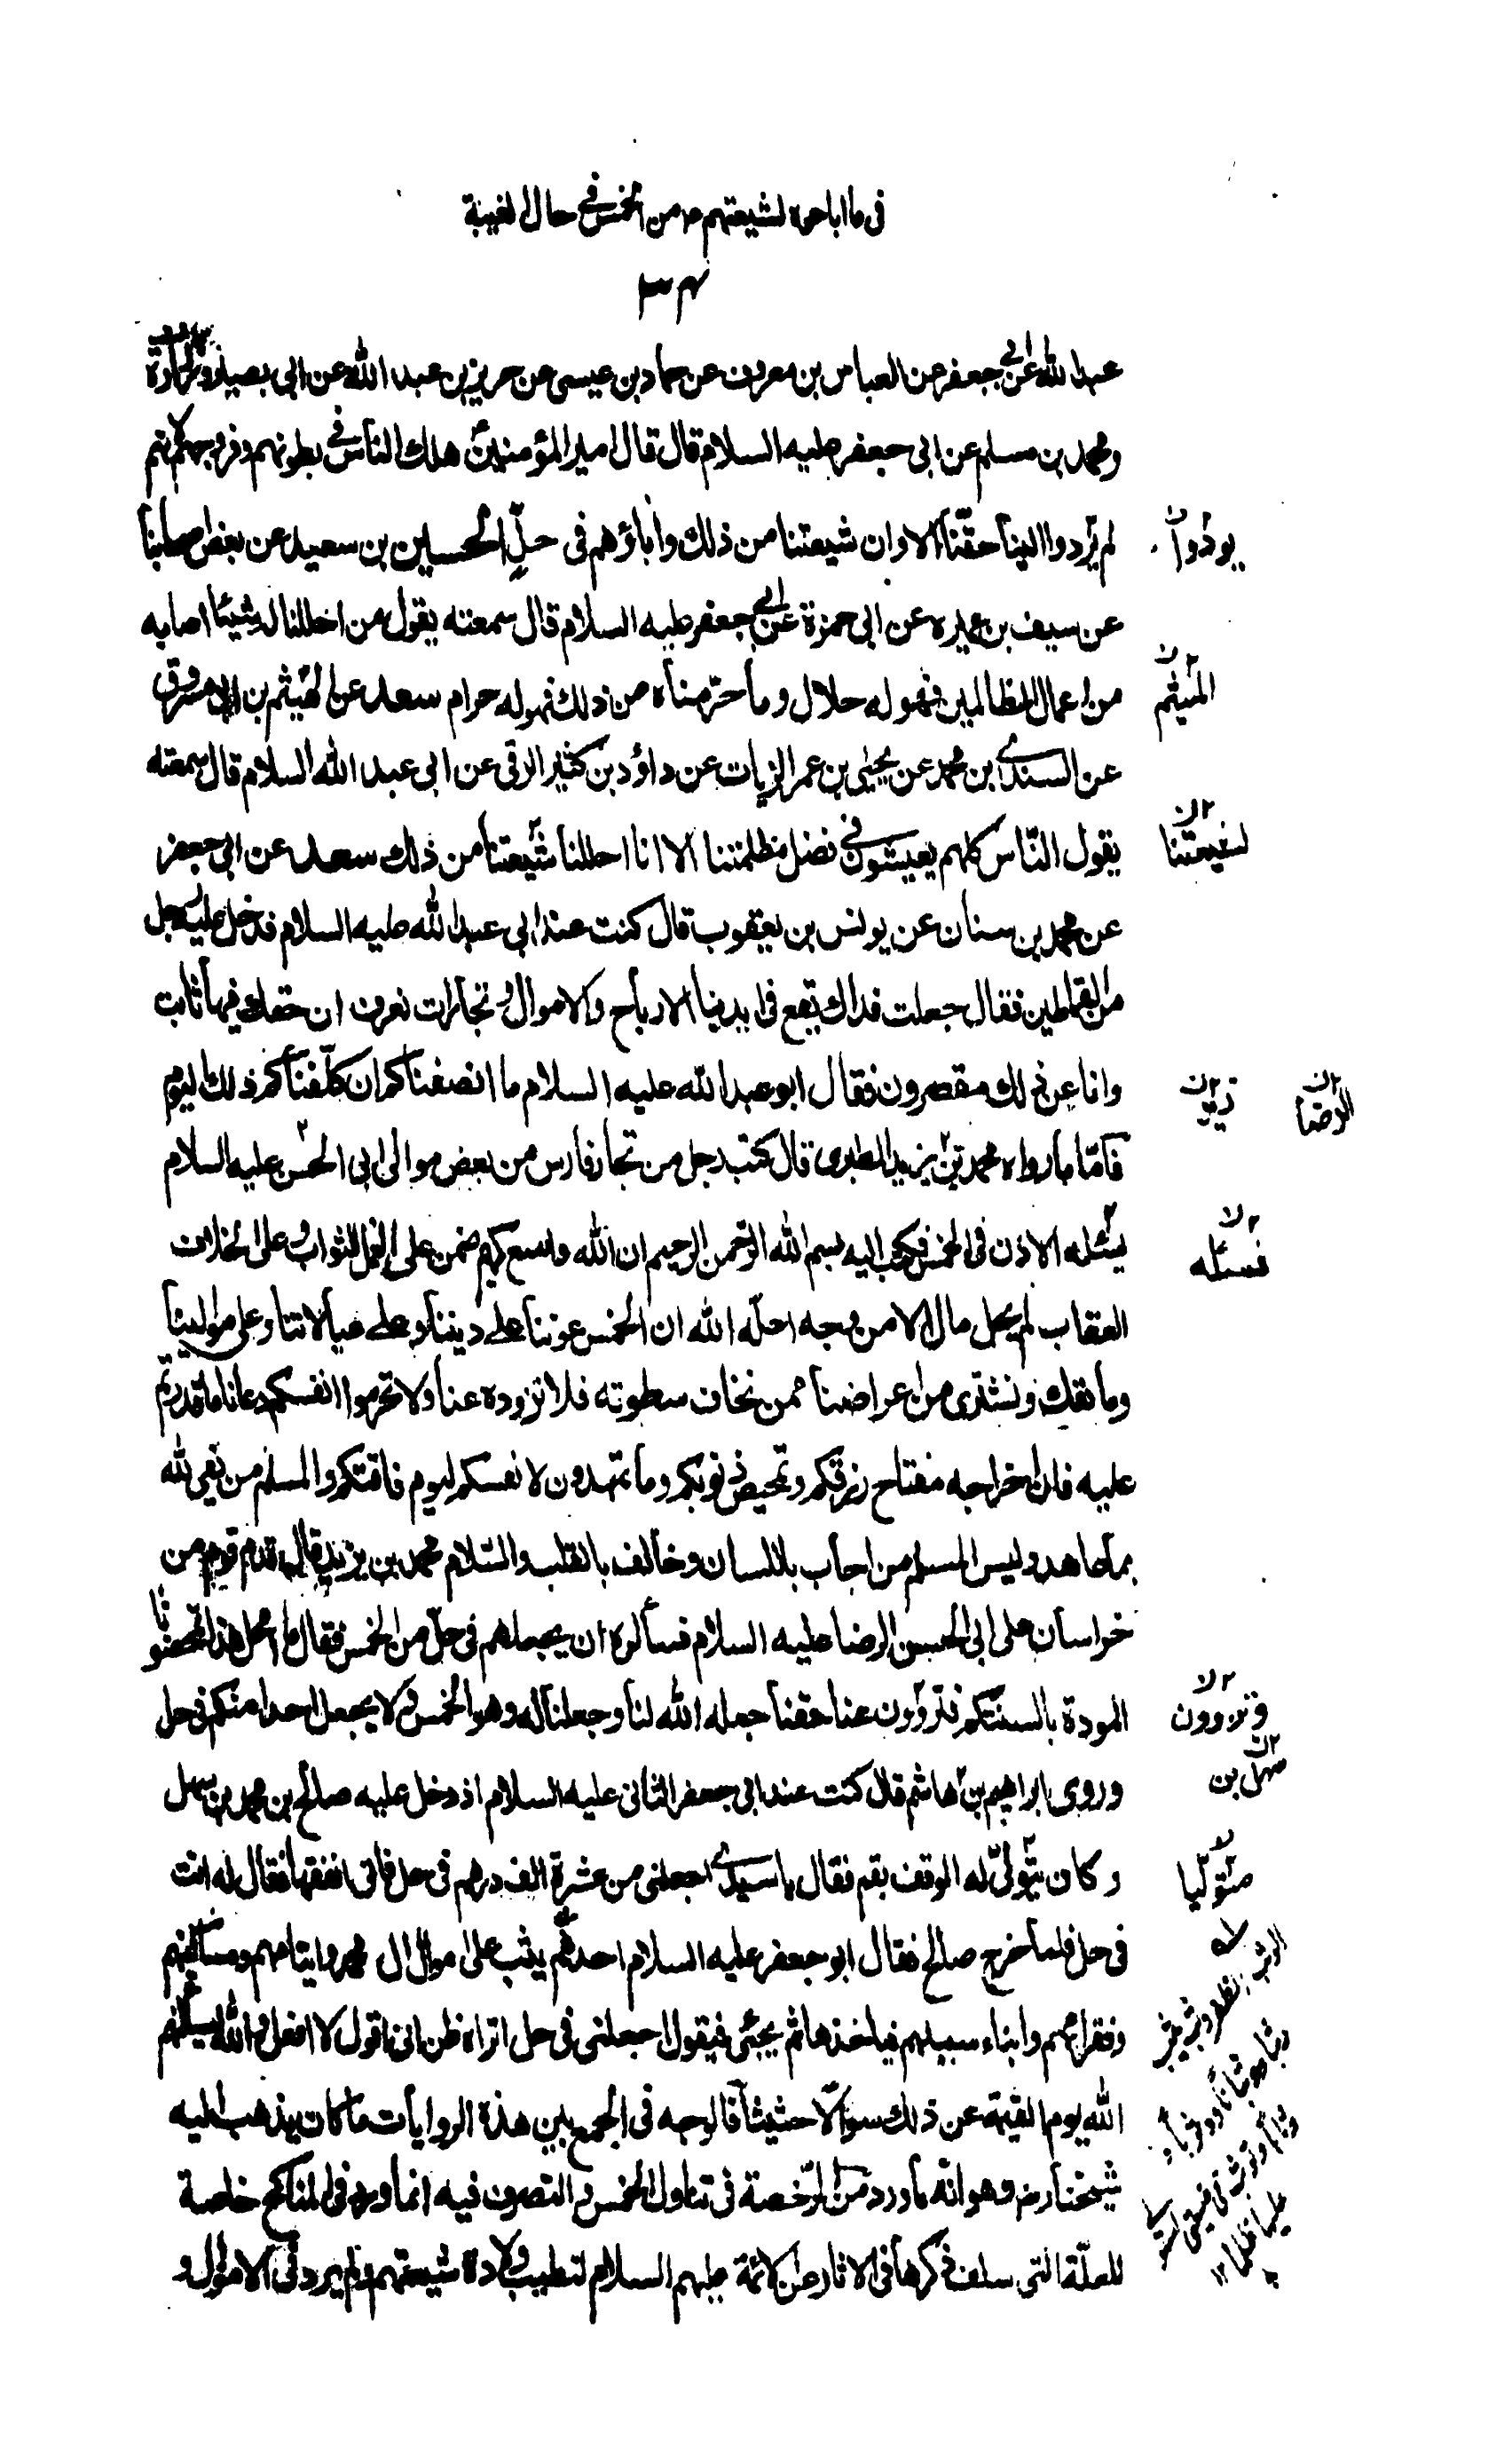 فى ما اباحوه لشيعتهم ع من الخمس في حال الغيبة
عبد الله عن ابي جعفر عن العباس بن معروف عن حماد بن عيسى عن حريز بن عبد الله عن ابى بصير و زرارة
و محمد بن مسلم عن ابى جعفر عليه السلام قال قال امير المؤمنين ع هلك الناس في بطونهم و فروجهم لانهم
لم يردوا الينا حقنا الا و ان شيعتنا من ذلك و اباؤهم فى حل الحسين بن سعيد عن بعض اصحابنا
عن سيف بن عميره عن ابى حمزة عن ابي جعفر عليه السلام قال سمعته يقول من احللنا له شيئا اصابه
من اعمال الظالمين فهو له حلال و ما حرمناه من ذلك فهو له حرام سعد عن الهيثم بن ابى مسروق
عن السندي ابن محمد عن يحيى بن عمر الزيات عن داؤد بن كثير الرقى عن ابى عبد الله السلام قال سمعته
يقول الناس كلهم يعيشون في فضل مظلمتنا الا انا احللنا شيعتنا من ذلك سعد عن ابى جعفر
عن محمد بن سنان عن يونس بن يعقوب قال كنت عند ابى عبد الله عليه السلام فدخل عليه رجل
من القماطين فقال جعلت فداك يقع فى ايدينا الارباح و الاموال و تجارات نعرف ان حقك فيها ثابت
و انا عن ذلك مقصرون فقال ابو عبد الله عليه السلام ما انصفناكم ان كلفناكم ذلك اليوم
فامّا ما رواه محمد بن يزيد الطبرى قال كتب رجل من تجار فارس من بعض موالى ابى الحسن عليه السلام
يسئله الاذن فى الخمس فكتب اليه بسم الله الرحمن الرحيم ان الله واسع كريم ضمن على العمل الثواب و على الخلاف
العقاب لم يحل مال الا من وجه احله الله ان الخمس عوننا على ديننا و على عيالاتنا و على موالينا
و ما نفك و نشترى من اعراضنا ممن نخاف سطوته فلا تزووه عنا و لا تحرموا انفسكم دعانا ما قدرتم
عليه فان اخراجه مفتاح رزقكم و تمحيص ذنوبكم و ما تمهدون لانفسكم ليوم فاقتكم و المسلم من يفى لله
بما عاهد و ليس المسلم من اجاب باللسان و خالف بالقلب و السلام محمد بن يزيد قال قدم قوم من
خراسان على ابى الحسن الرضا عليه السلام فسألوه ان يجعلهم فى حل من الخمس فقال ما امحل هذا تمحضونا
المودة بالسنتكم فتزوون عنا حقنا جعله الله لنا و جعلنا له و هو الخمس و لا يجعل احدا منكم فى حل
و روى ابراهيم بن هاشم قال كنت عند ابى جعفر الثانى عليه السلام اذ دخل عليه صالح بن محمد بن سهل
و كان يتولى له الوقف بقم فقال يا سيدي اجعلنى من عشرة الف درهم فى حل فانى انفقها فقال له انت
فى حل فلما خرج صالح فقال ابو جعفر عليه السلام احدهم يثب على اموال ال محمد و ايتامهم و مساكينهم
و فقرائهم و ابناء سبيلهم فياخذها ثم يجئى فيقول اجعلنى فى حل اتراه ظن انى اقول لا افعل و الله ليسئلنهم
الله يوم القيمة عن ذلك سوالا حثيثا فالوجه فى الجمع بين هذه الروايات ما كان يذهب اليه
شيخنا ره و هو انه ما ورد من الرخصة فى تناول الخمس و التصرف فيه انما ورد فى المناكح خاصة
للعلة التى سلف ذكرها فى الاثار عن الائمة عليهم السلام لتطيب ولادة شيعتهم و لم يرد فى الاموال و
يودوا ن
الميثم ن
لشيعتنا ن
الرضا ن
فسئله
و تزوون
سهل بن
متوليا